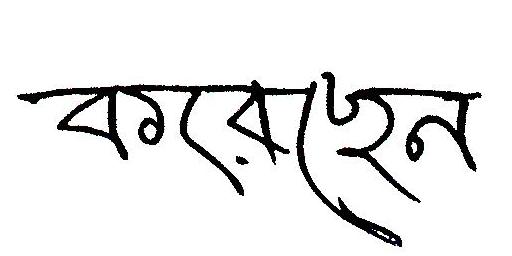 করেছেন